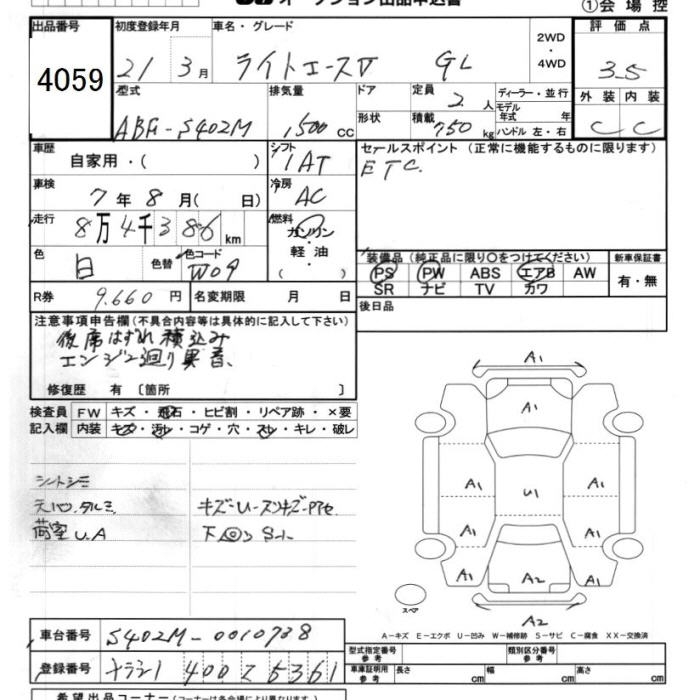 出品番号 初度登録年月 車名・グレード 2WD・4WD 評価点
4059 21 3月 ライトエースV GL 3.5
型式 排気量 ドア形状 定員 2人 ディーラー・並行 外装 内装
ABF-S402M 1,500cc 積載 750kg モデル年式 年 ハンドル 左・右 C C
車歴 自家用・( ) シフト IAT セールスポイント (正常に機能するものに限ります)
ETC.
車検 7年8月( 日) 冷房 AC
走行 8万4千386km 燃料 ガソリン・軽油・( )
色 白 色替 色コード W09 装備品 (純正品に限り○をつけてください) 新車保証書
PS PW ABS エアB AW 有・無
SR ナビ TV カワ
R券 9.660円 名変期限 月 日 後日品
注意事項申告欄 (不具合内容等は具体的に記入して下さい)
後席はずれ積込み
エンジン廻り異音、
修復歴 有 〔箇所 〕
検査員 FW キズ・飛石・ヒビ割・リペア跡・×要
記入欄 内装 キズ・汚レ・コゲ・穴・スレ・キレ・破レ
シートシミ
天心.タルミ
荷室U.A
A1
A1
A1 A1
U1
A1 A1
A1 A1
A2
スペア
A2
A-キズ E-エクボ U-凹み W-補修跡 S-サビ C-腐食 XX-交換済
車台番号 S402M-0010738
型式指定番号 参考 類別区分番号 参考
登録番号 400 5361
車庫証明用 参考 長さ 幅 高さ
希望出品コーナー